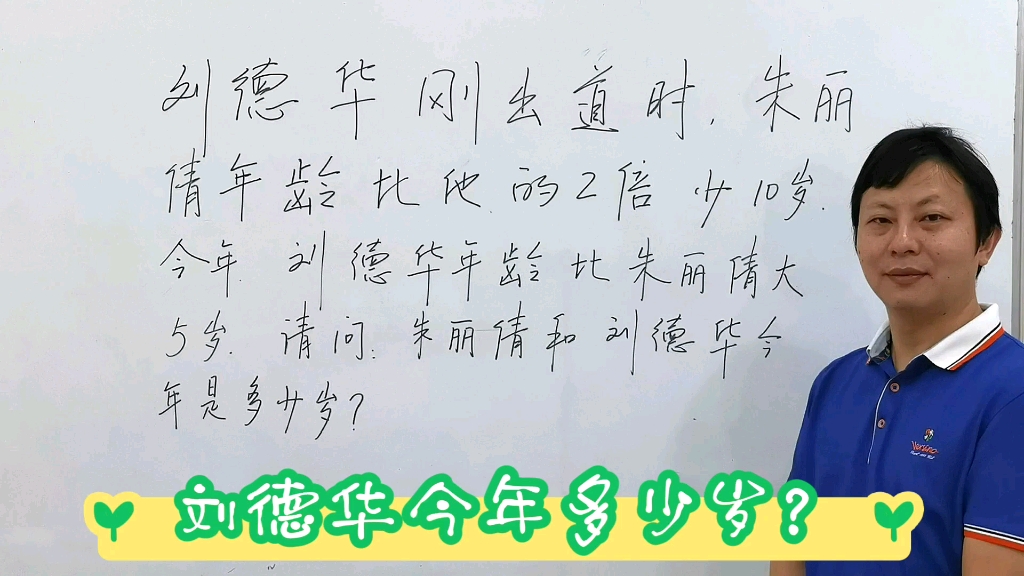 刘德华刚出道时,朱丽
倩年龄比他的2倍少10岁.
今年刘德华年龄比朱丽倩大
5岁.请问:朱丽倩和刘德华今
年是多少岁?
刘德华今年多少岁?